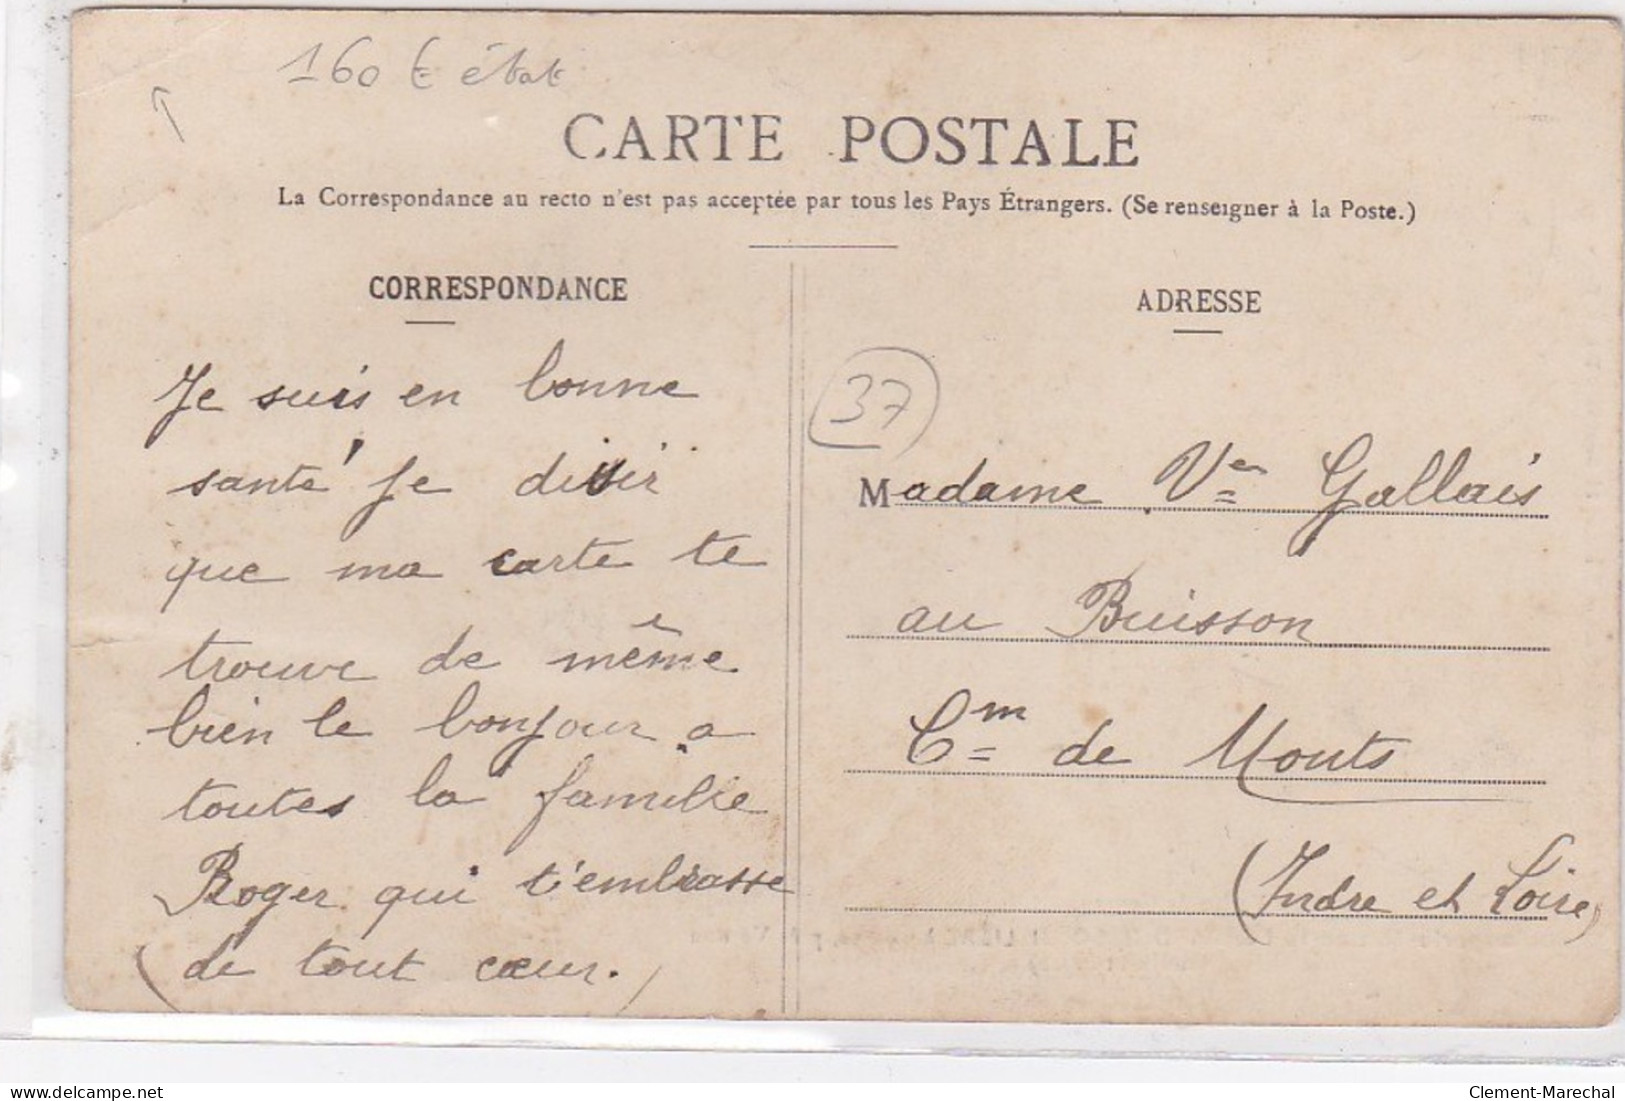 160 € état
CARTE POSTALE
La Correspondance au recto n'est pas acceptée par tous les Pays Étrangers. (Se renseigner à la Poste.)
CORRESPONDANCE
ADRESSE
37
Je suis en bonne
santé je disir
que ma carte te
trouve de même
bien le bonjour a
toutes la famille
Roger qui t'embrasse
(de tout cœur.)
Madame Ve Gallais
au Buisson
Cm de Monts
(Indre et Loire)
delcampe.net
Clement-Marechal